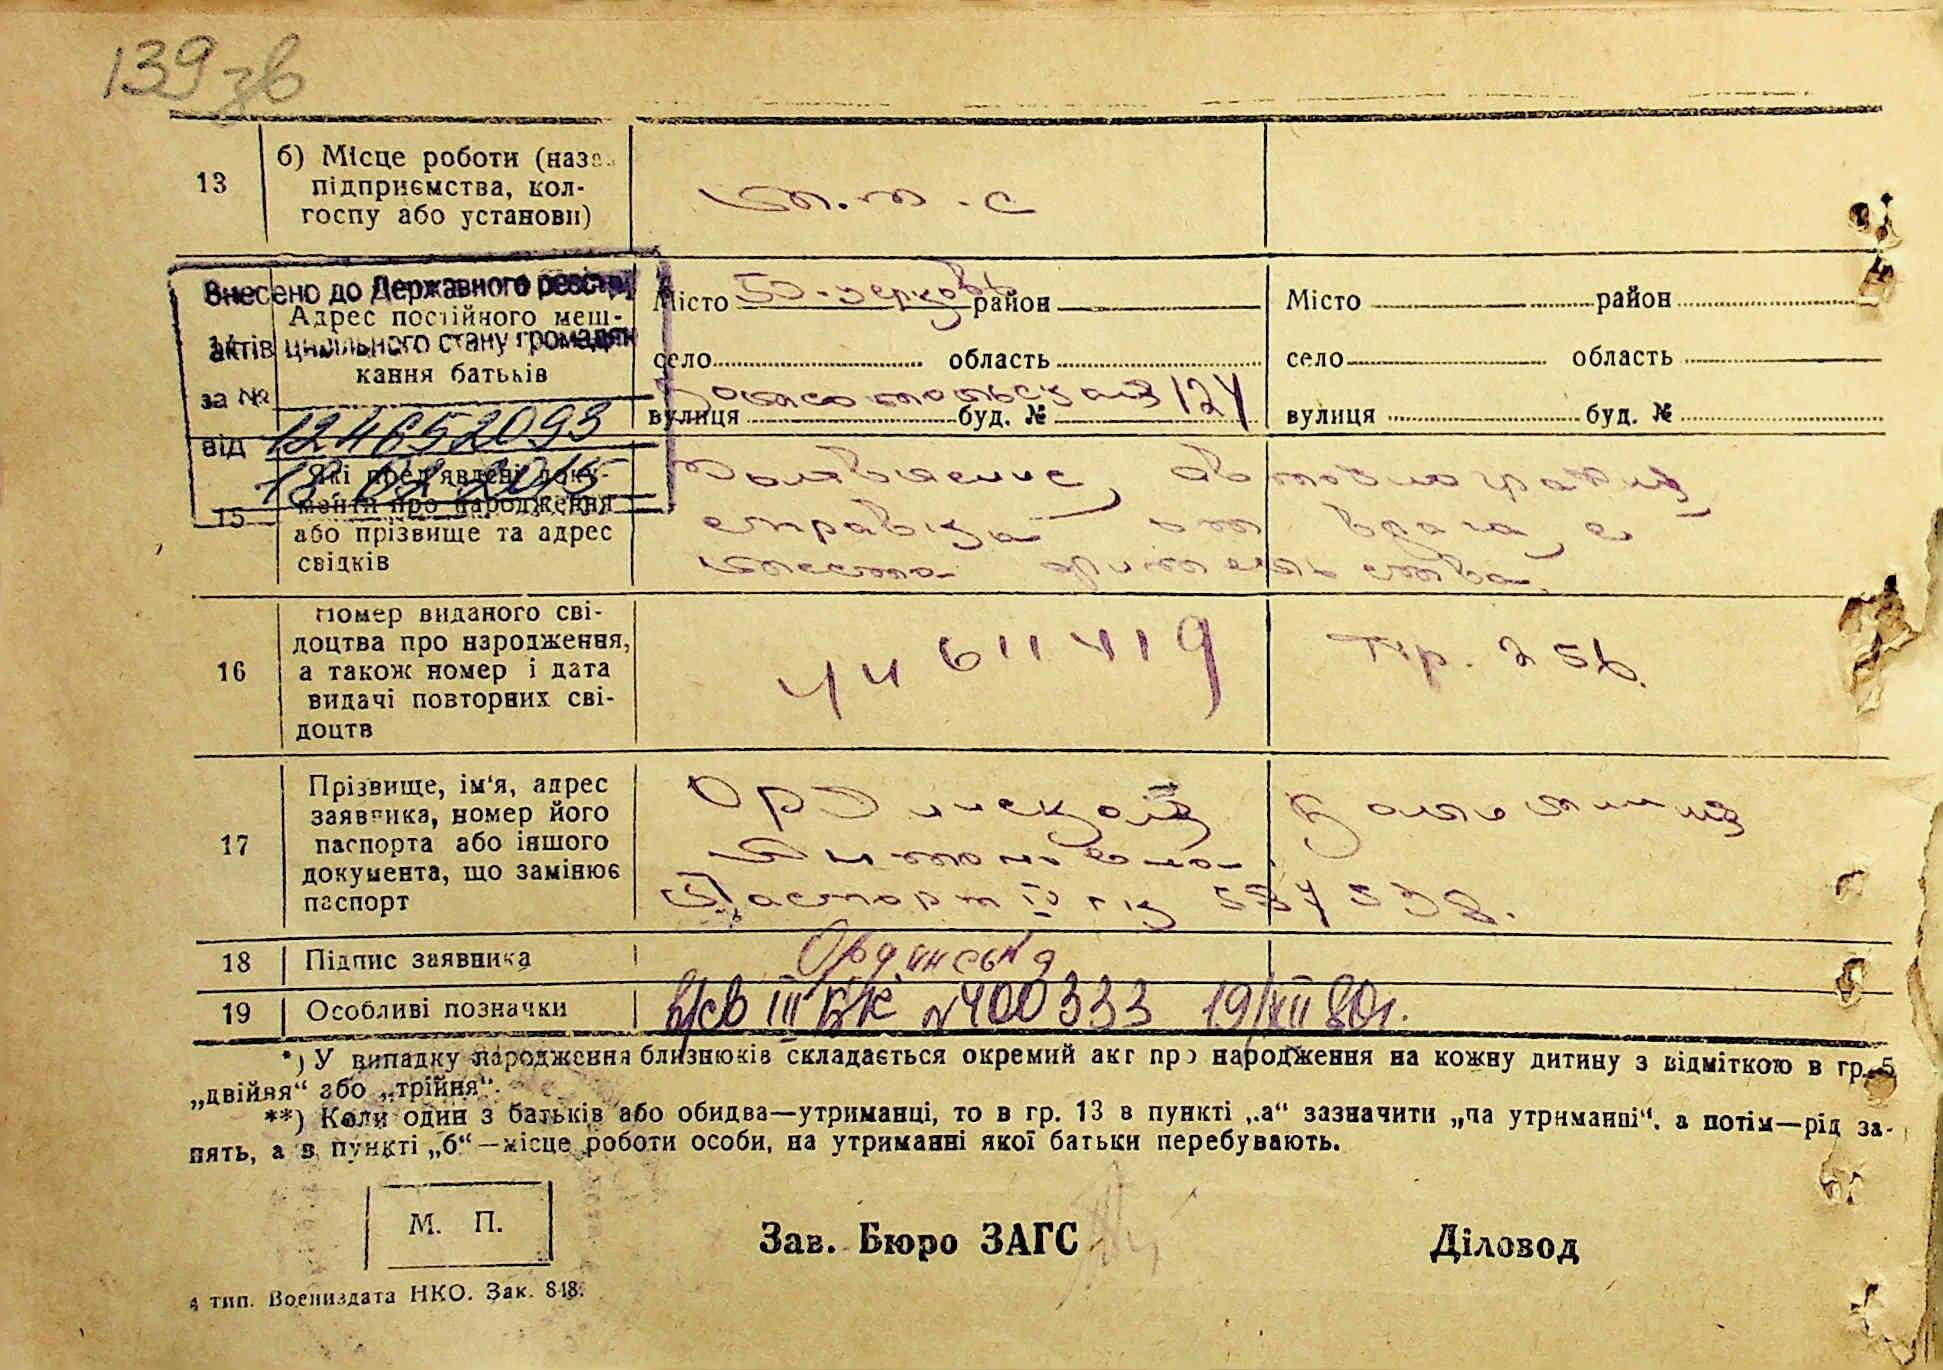 139 зв
13
б) Місце роботи (назв
підприємства, кол-
госпу або установи)
м.т.с
Внесено до Державного реєстру
актів цивільного стану громадян
за №
124652093
від
18 02 2015
Адрес постійного меш-
кання батьків
Місто Б-церковь район
село область
вулиця буд. № 124
Місто район
село область
вулиця буд. №
15
Які пред'явлені доку-
менти про народження
або прізвище та адрес
свідків
Заявление, автобиография
справка от врача, с
места жительства
16
Номер виданого сві-
доцтва про народження,
а також номер і дата
видачі повторних сві-
доцтв
44611419
Пр. 256.
17
Прізвище, ім'я, адрес
заявника, номер його
паспорта або іншого
документа, що замінює
паспорт
Ординская Валентина
Антоновна
Паспорт IV
18
Підпис заявника
Ординська
19
Особливі позначки
III БК №400333 19/XII 80г.
*) У випадку народження близнюків складається окремий акт про народження на кожну дитину з відміткою в гр. 5
„двійня“ або „трійня“.
**) Коли один з батьків або обидва—утриманці, то в гр. 13 в пункті „а“ зазначити „на утриманні“, а потім—рід за-
нять, а в пункті „б“—місце роботи особи, на утриманні якої батьки перебувають.
М. П.
Зав. Бюро ЗАГС
Діловод
4 тип. Воениздата НКО. Зак. 848.